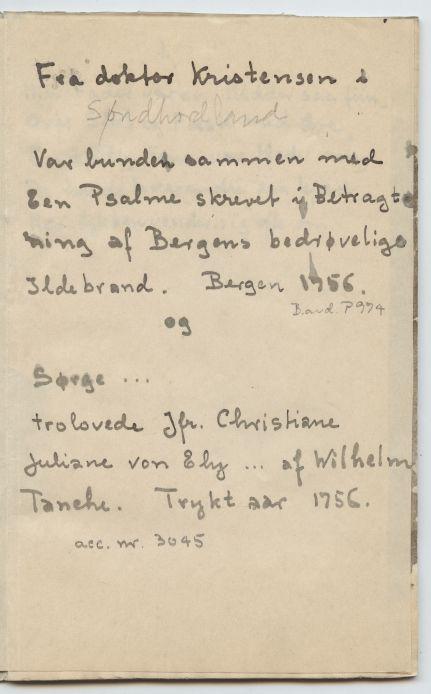 Fra doktor Kristensen i
Søndhordland
Var bunden sammen med
Een Psalme skrevet ij Betragte
ning af Bergens bedrøvelige
Ildebrand. Bergen 1756.
B.avd. P 974
og
Sørge ...
trolovede Jfr. Christiane
Juliane von Ely ... af Wilhelm
Tanche. Trykt aar 1756.
acc. nr. 3045